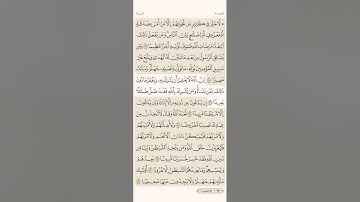 ۞ لَّا خَيْرَ فِي كَثِيرٍ مِّن نَّجْوَىٰهُمْ إِلَّا مَنْ أَمَرَ بِصَدَقَةٍ أَوْ
مَعْرُوفٍ أَوْ إِصْلَٰحٍۭ بَيْنَ ٱلنَّاسِ وَمَن يَفْعَلْ ذَٰلِكَ
ٱبْتِغَآءَ مَرْضَاتِ ٱللَّهِ فَسَوْفَ نُؤْتِيهِ أَجْرًا عَظِيمًا
وَمَن يُشَاقِقِ ٱلرَّسُولَ مِنۢ بَعْدِ مَا تَبَيَّنَ لَهُ ٱلْهُدَىٰ وَيَتَّبِعْ غَيْرَ
سَبِيلِ ٱلْمُؤْمِنِينَ نُوَلِّهِۦ مَا تَوَلَّىٰ وَنُصْلِهِۦ جَهَنَّمَ وَسَآءَتْ
مَصِيرًا إِنَّ ٱللَّهَ لَا يَغْفِرُ أَن يُشْرَكَ بِهِۦ وَيَغْفِرُ مَا دُونَ
ذَٰلِكَ لِمَن يَشَآءُ وَمَن يُشْرِكْ بِٱللَّهِ فَقَدْ ضَلَّ ضَلَٰلًۢا
بَعِيدًا إِن يَدْعُونَ مِن دُونِهِۦٓ إِلَّآ إِنَٰثًا وَإِن يَدْعُونَ
إِلَّا شَيْطَٰنًا مَّرِيدًا لَّعَنَهُ ٱللَّهُ وَقَالَ لَأَتَّخِذَنَّ مِنْ
عِبَادِكَ نَصِيبًا مَّفْرُوضًا وَلَأُضِلَّنَّهُمْ وَلَأُمَنِّيَنَّهُمْ
وَلَءَامُرَنَّهُمْ فَلَيُبَتِّكُنَّ ءَاذَانَ ٱلْأَنْعَٰمِ وَلَءَامُرَنَّهُمْ
فَلَيُغَيِّرُنَّ خَلْقَ ٱللَّهِ وَمَن يَتَّخِذِ ٱلشَّيْطَٰنَ وَلِيًّا مِّن
دُونِ ٱللَّهِ فَقَدْ خَسِرَ خُسْرَانًا مُّبِينًا يَعِدُهُمْ
وَيُمَنِّيهِمْ وَمَا يَعِدُهُمُ ٱلشَّيْطَٰنُ إِلَّا غُرُورًا أُو۟لَٰٓئِكَ
مَأْوَىٰهُمْ جَهَنَّمُ وَلَا يَجِدُونَ عَنْهَا مَحِيصًا